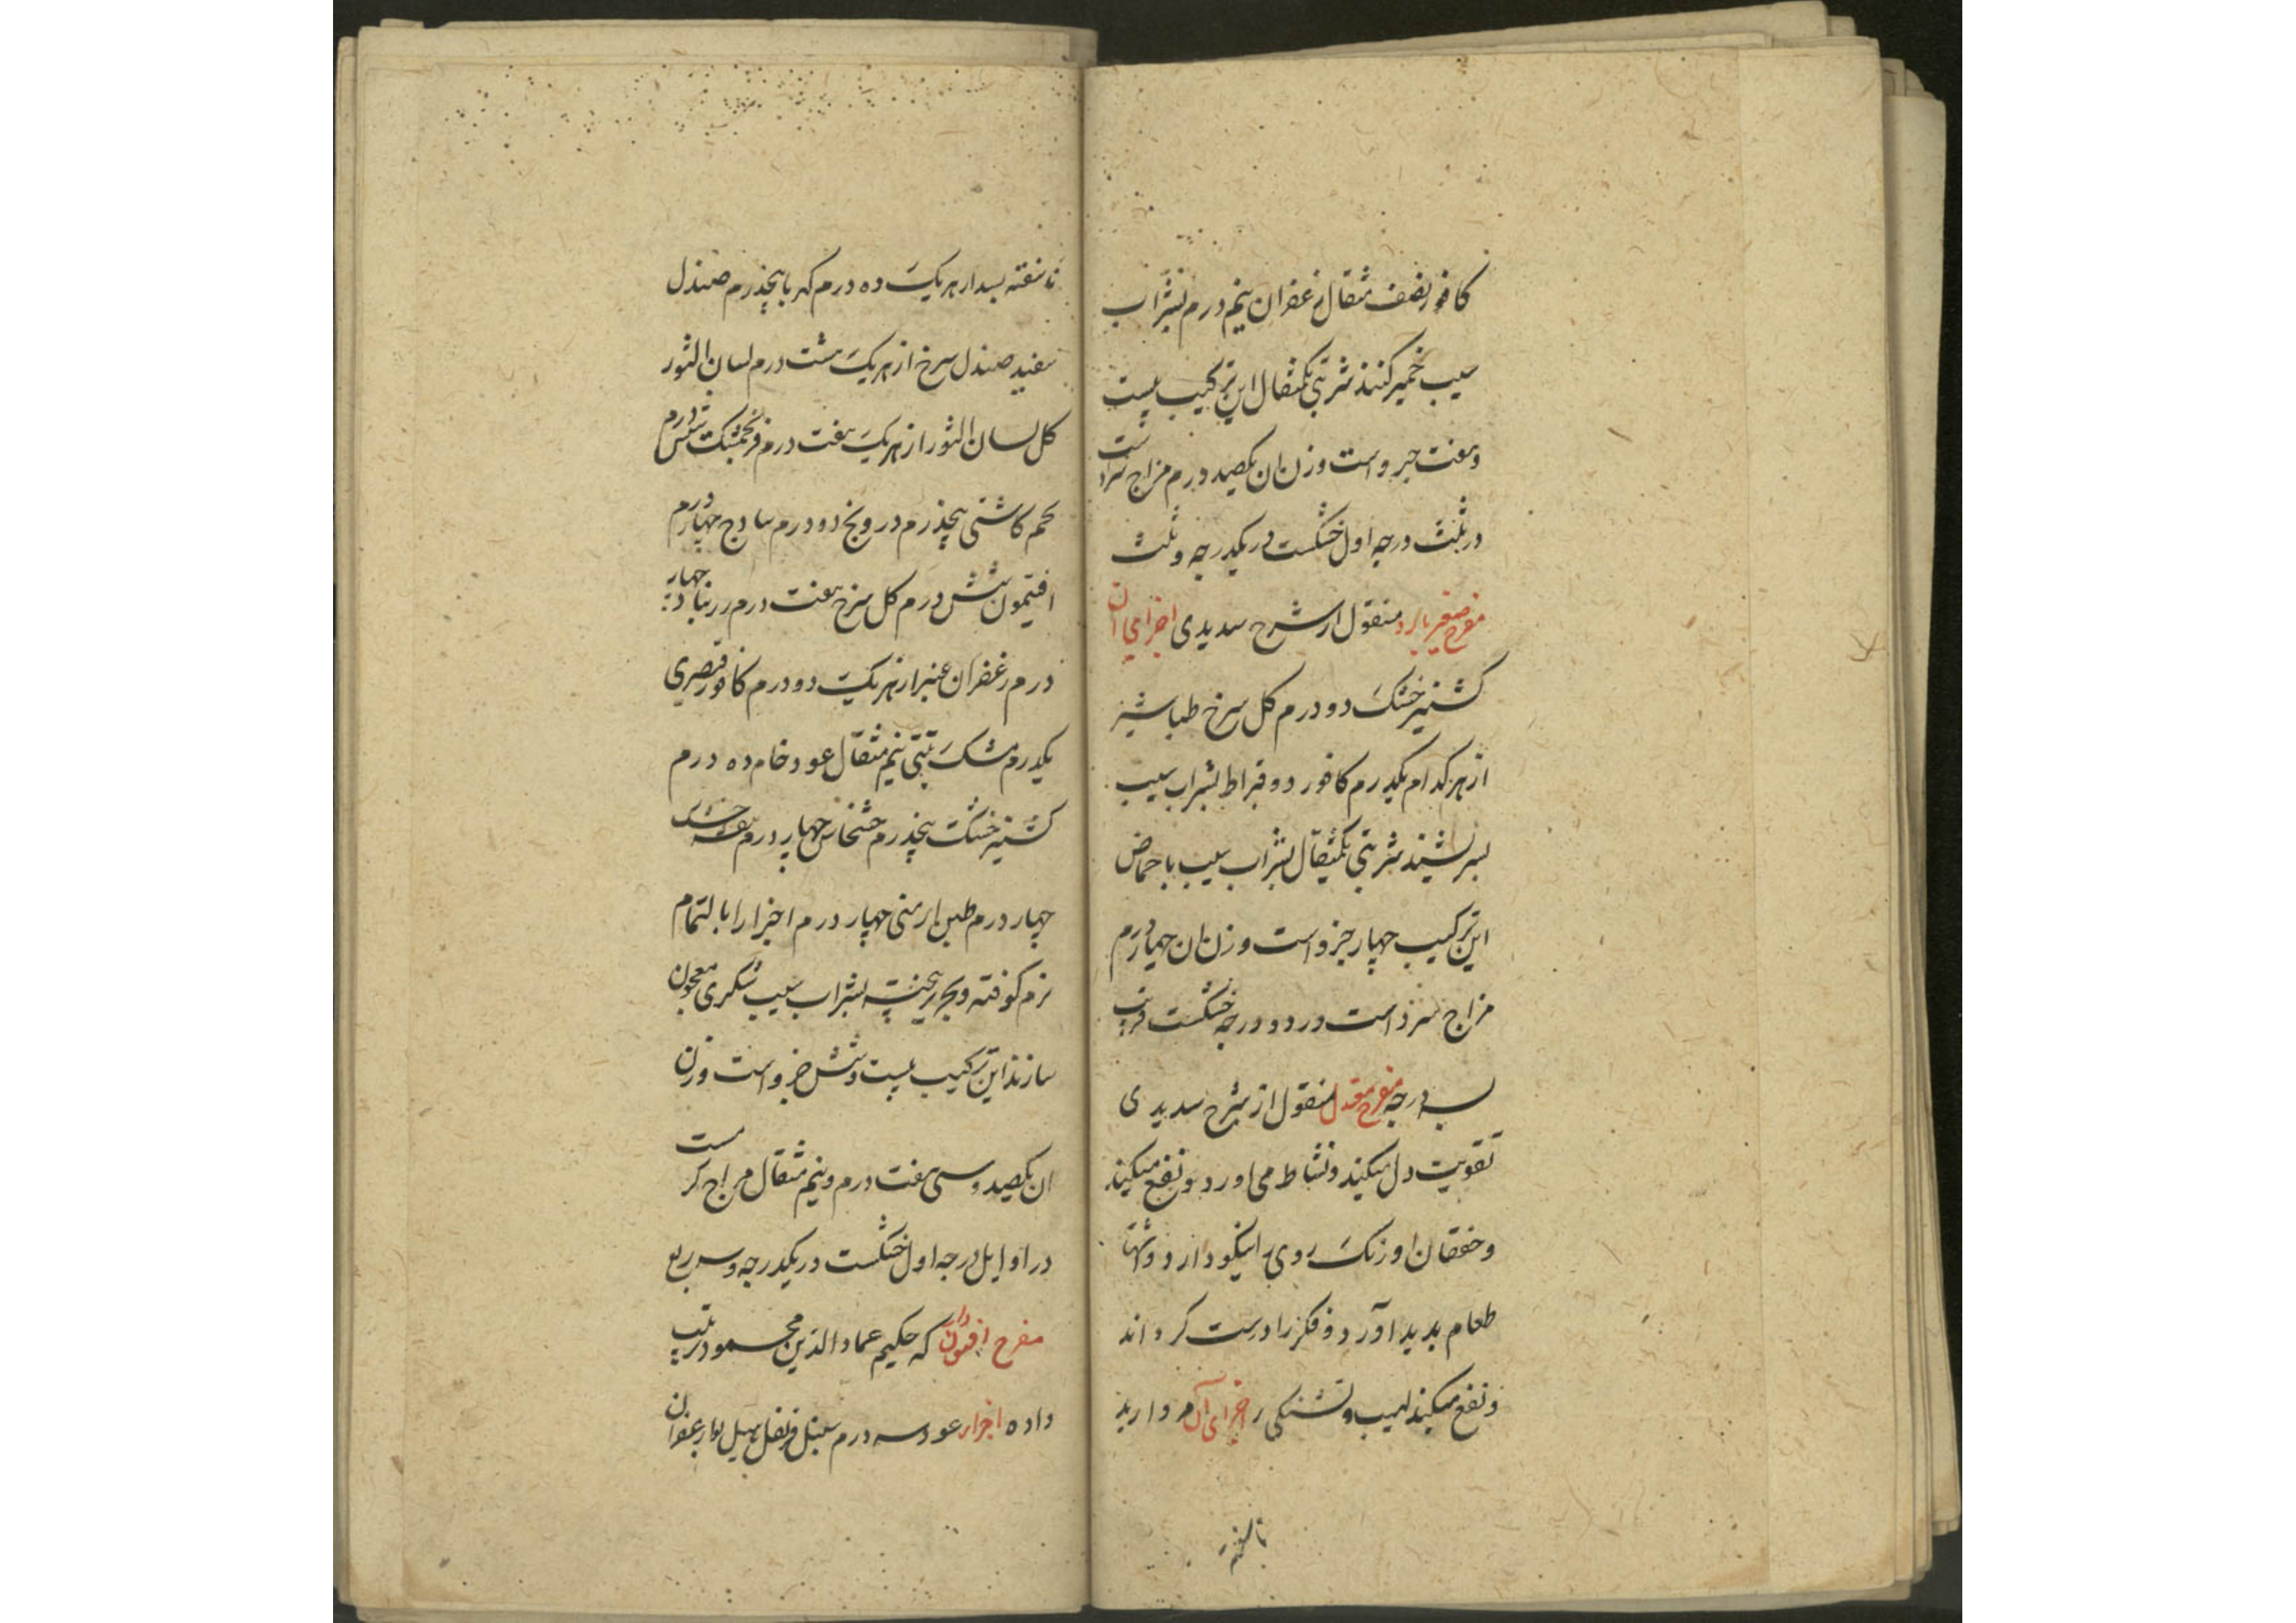 کافور نصف مثقال زعفران نیم درم بشراب
سیب خمیر کنند شربتی یکمثقال این ترکیب بیست
وهفت جزو است وزن ان یکصید درم مزاج سرد است
در ثلث درجه اول خشکست در یکدرجه وثلث
مفرح صغیر بارد منقول از شرح سدیدی اجزای ان
کشنیز خشک دو درم کل سرخ طباشیر
از هر کدام یکدرم کافور دو قیراط بشراب سیب
بسرشند شربتی یکمثقال بشراب سیب با حماض
این ترکیب چهار جزو است وزن ان چهار درم
مزاج سرد است در دو درجه خشکست قریب
بسه درجه مفرح معتدل منقول از شرح سدیدی
تقویت دل میکند ونشاط می اورد ونفع میکند
وخفقان را ورنک روی را نیکو دارد واشتها
طعام بدید آورد وفکر را درست کرداند
ونفع میکند لهیب وتشنکی را اجزای آن مروارید
ناسفته
ناسفته بسد از هر یک ده درم کهربا پنجدرم صندل
سفید صندل سرخ از هر یک هشت درم لسان الثور
کل لسان الثور از هر یک هفت درم فرنجمشک شش درم
تخم کاشنی پنجدرم درونج دو درم سادج چهار درم
افتیمون شش درم کل سرخ هفت درم زرنباد چهار
درم زعفران عنبر از هر یک دو درم کافور قیصری
یکدرم مشک تبتی نیم مثقال عود خام ده درم
کشنیز خشک پنجدرم خشخاش چهار درم
چهار درم طین ارمنی چهار درم اجزا را بالتمام
نرم کوفته وبحریر بیخته بشراب سیب شکری معجون
سازند این ترکیب بیست وشش جزو است وزن
ان یکصید وسی هفت درم ونیم مثقال مزاج کرمست
در اوایل درجه اول خشکست در یکدرجه وسه ربع
مفرح که حکیم عماد الدین محمود ترتیب
داده اجزا عود سه درم سنبل قرنفل هیل بوا زعفران